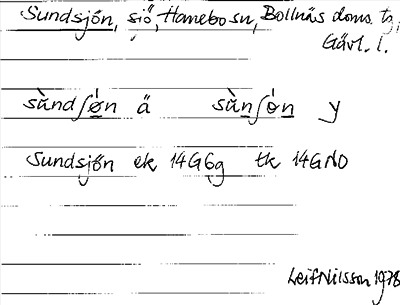 Sundsjön, sjö, Hanebo sn, Bollnäs doms. tg,
Gävl. l.
sùndʃø̀n ä sùnʃøn y
Sundsjön ek 14G6g tk 14GNO
Leif Nilsson 1978